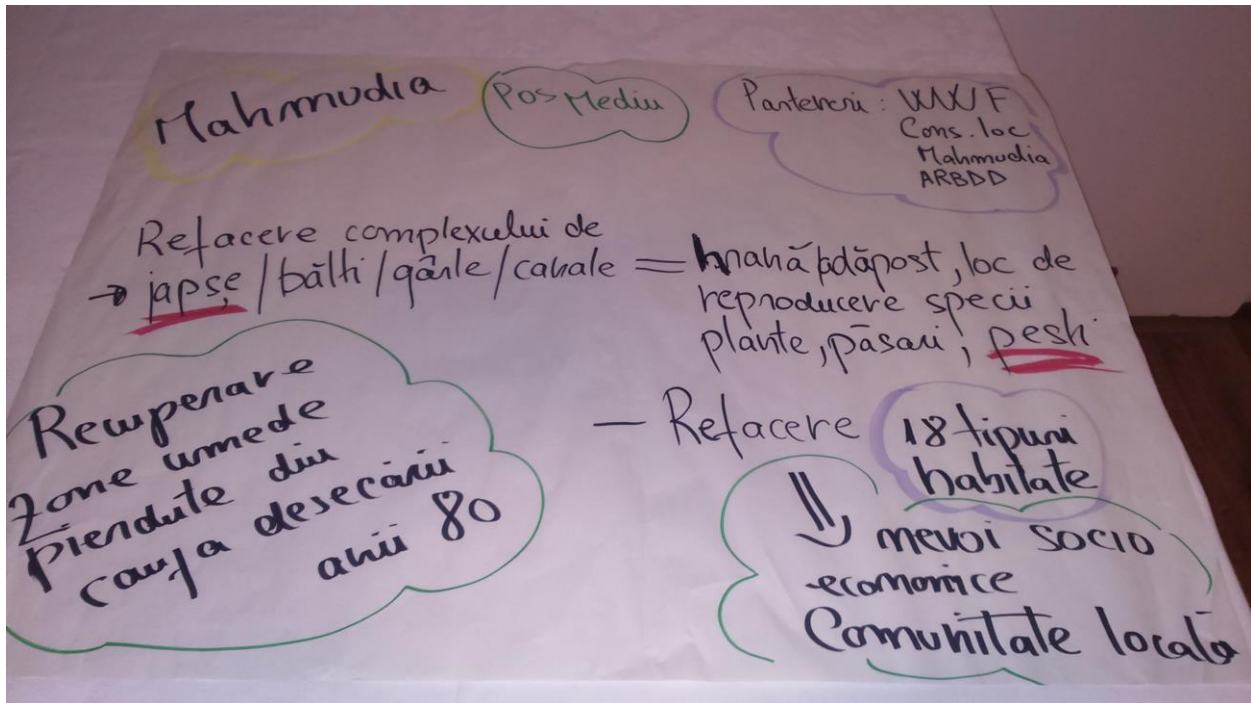 Mahmudia
Pos Mediu
Parteneri : WWF
Cons. loc
Mahmudia
ARBDD
Refacere complexului de
→ japșe / bălti / gârle / canale =
hrană/adăpost, loc de
reproducere specii
plante, păsari, pești
Recuperare
zone umede
pierdute din
cauza desecării
anii 80
- Refacere 18 tipuri
habitate
⇓ nevoi socio
economice
Comunitate locală